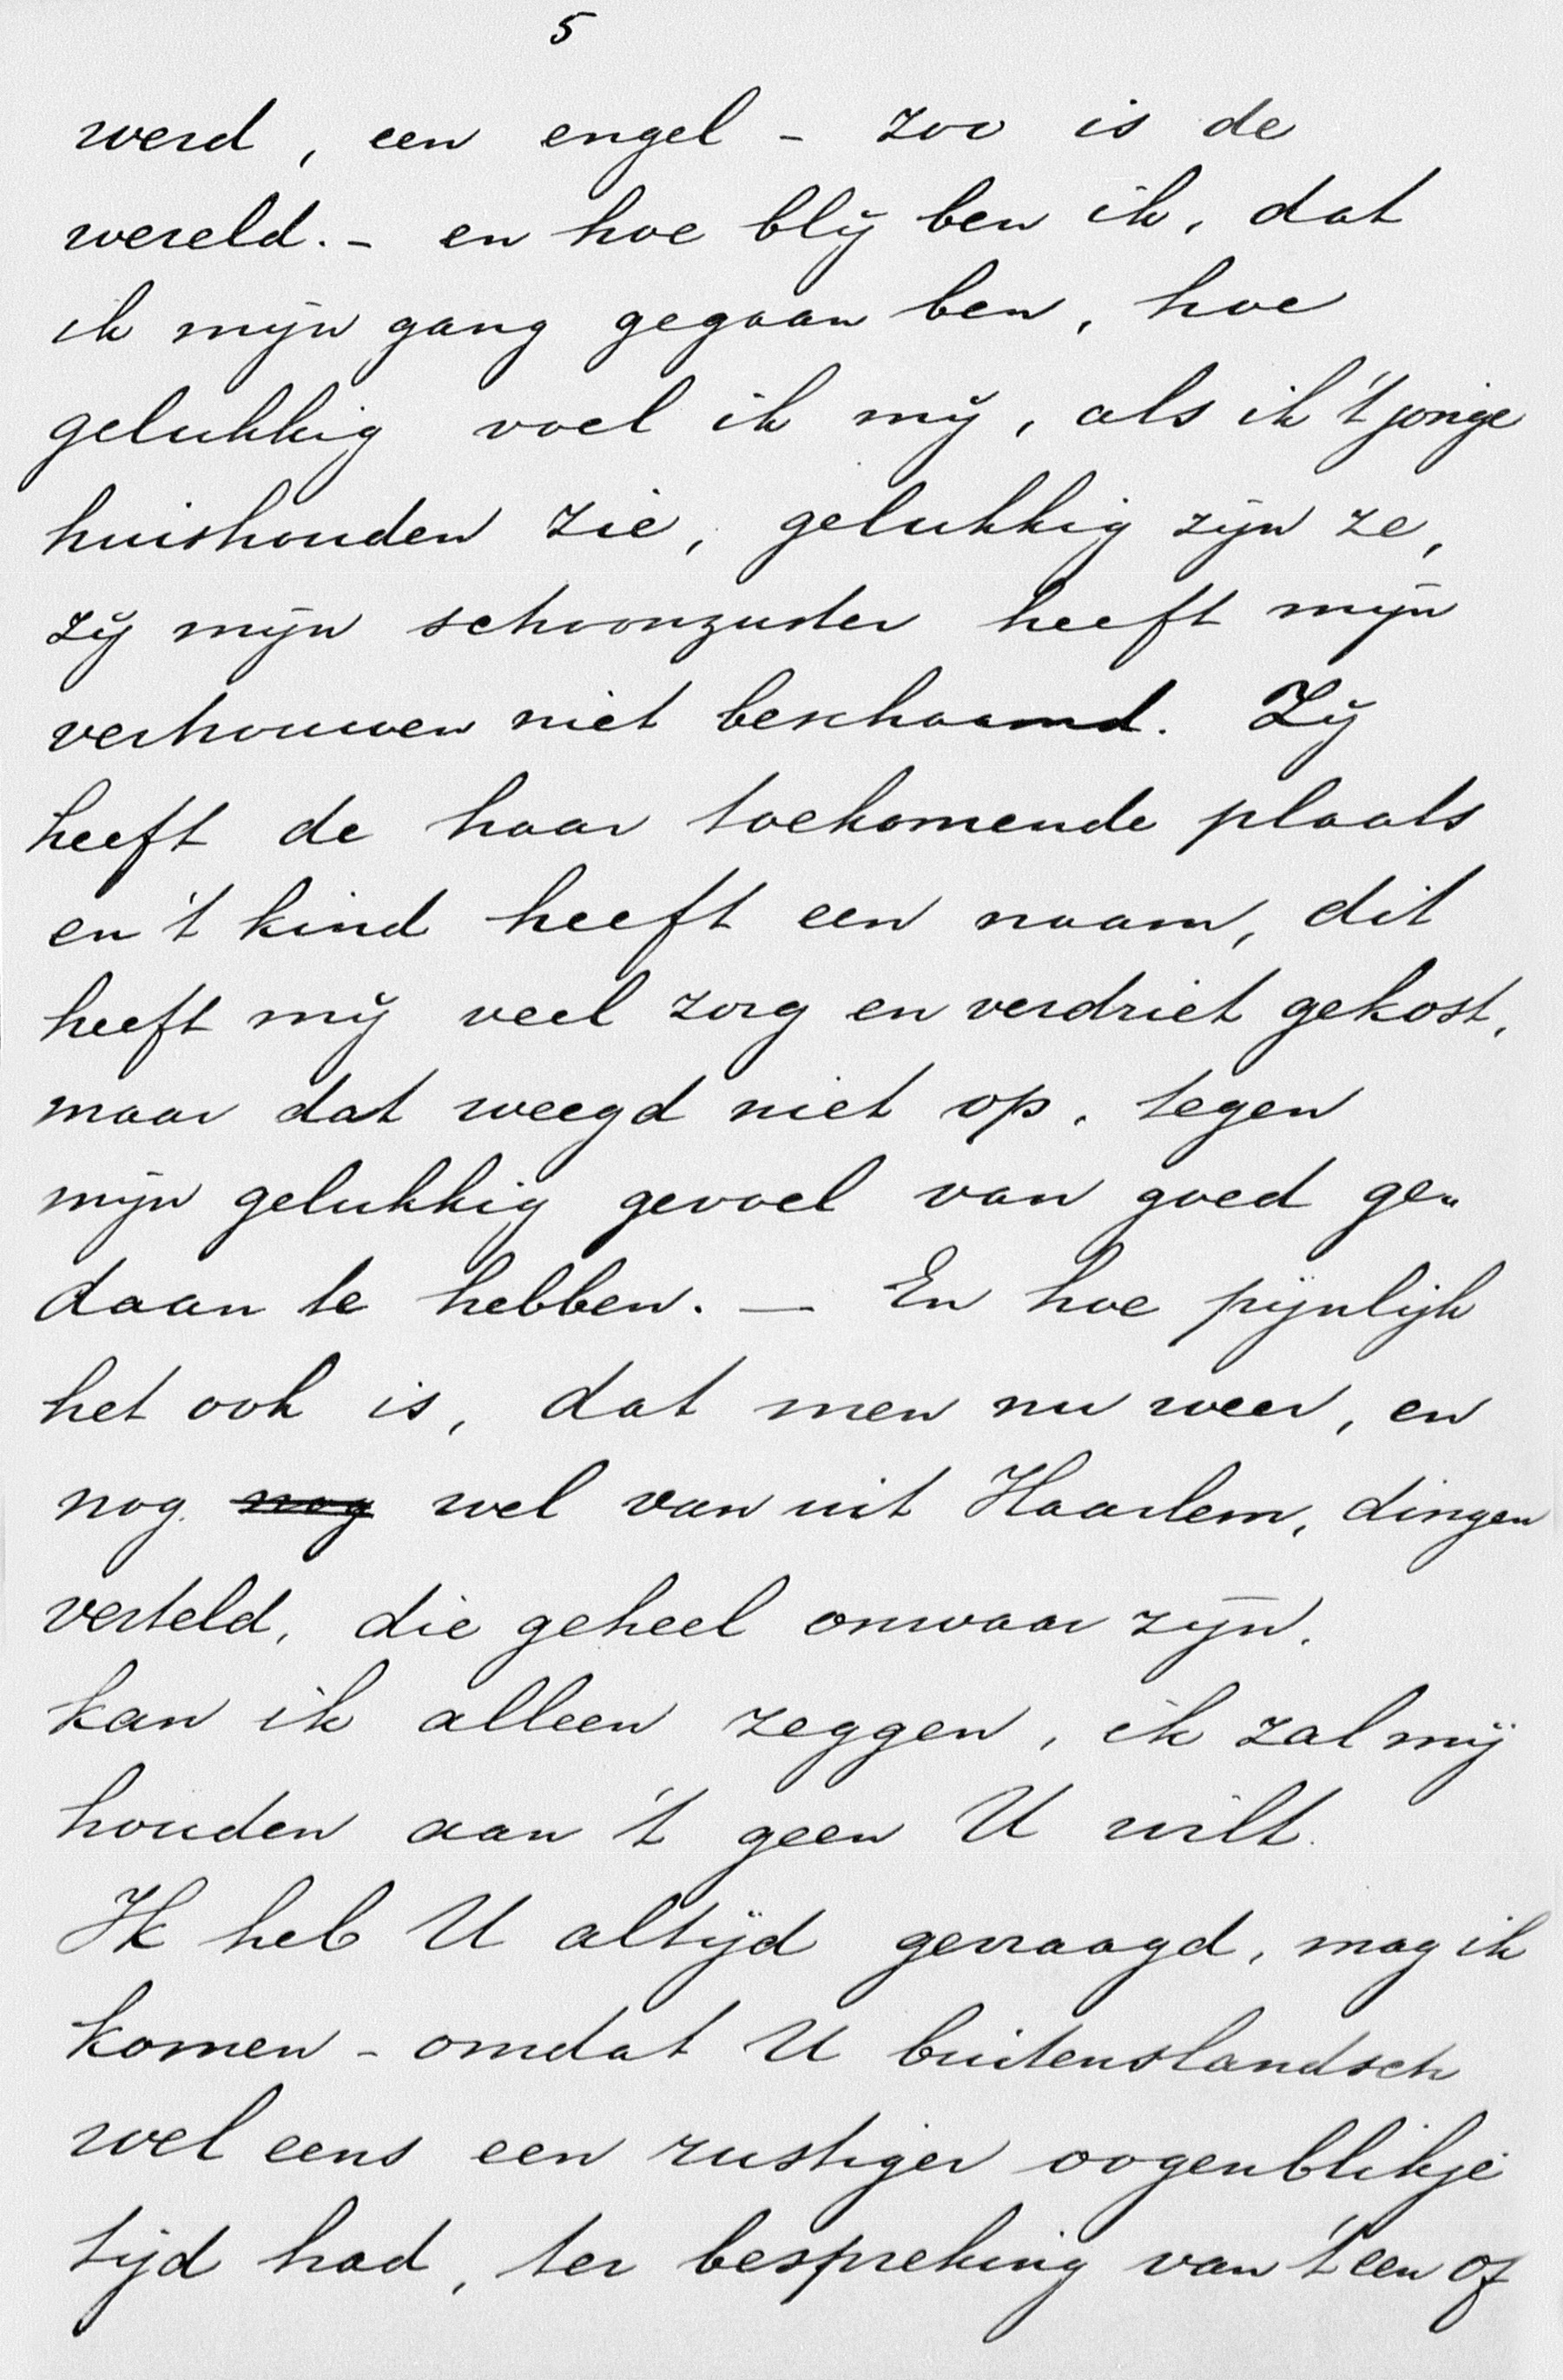 5
werd, een engel - zoo is de
wereld. - en hoe blij ben ik, dat
ik mijn gang gegaan ben, hoe
gelukkig voel ik mij, als ik 't jonge
huishouden zie, gelukkig zijn ze,
zij mijn schoonzuster heeft mijn
vertrouwen niet beschaamd. Zij
heeft de haar toekomende plaats
en 't kind heeft een naam, dit
heeft mij veel zorg en verdriet gekost,
maar dat weegd niet op, tegen
mijn gelukkig gevoel van goed ge„
daan te hebben. — En hoe pijnlijk
het ook is, dat men nu weer, en
nog nog wel van uit Haarlem, dingen
verteld, die geheel onwaar zijn.
kan ik alleen zeggen, ik zal mij
houden aan 't geen U wilt.
Ik heb U altijd gevraagd, mag ik
komen - omdat U buitenslandsch
wel eens een rustiger oogenblikje
tijd had, ter bespreking van 't een of